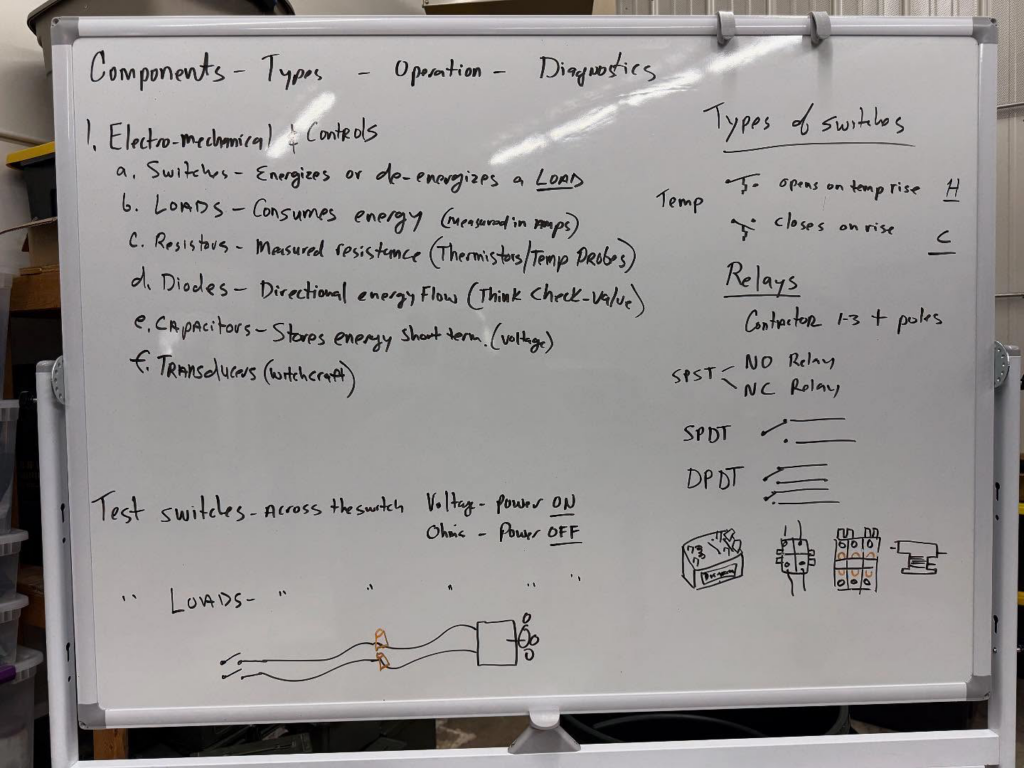 Components - Types - Operation - Diagnostics
1. Electro-mechanical & Controls
a. Switches - Energizes or de-energizes a LOAD
b. LOADS - Consumes energy (measured in amps)
c. Resistors - Measured resistance (Thermistors/Temp PROBES)
d. Diodes - Directional energy Flow (Think Check-Valve)
e. CAPACitors - Stores energy Short term. (voltage)
f. TRANSducers (witchcraft)
Test switches - Across the switch Voltage - power ON
Ohmic - Power OFF
" LOADS - " " " " "
Types of switches
Temp opens on temp rise H
closes on rise C
Relays
Contractor 1-3 + poles
SPST NO Relay
NC Relay
SPDT
DPDT